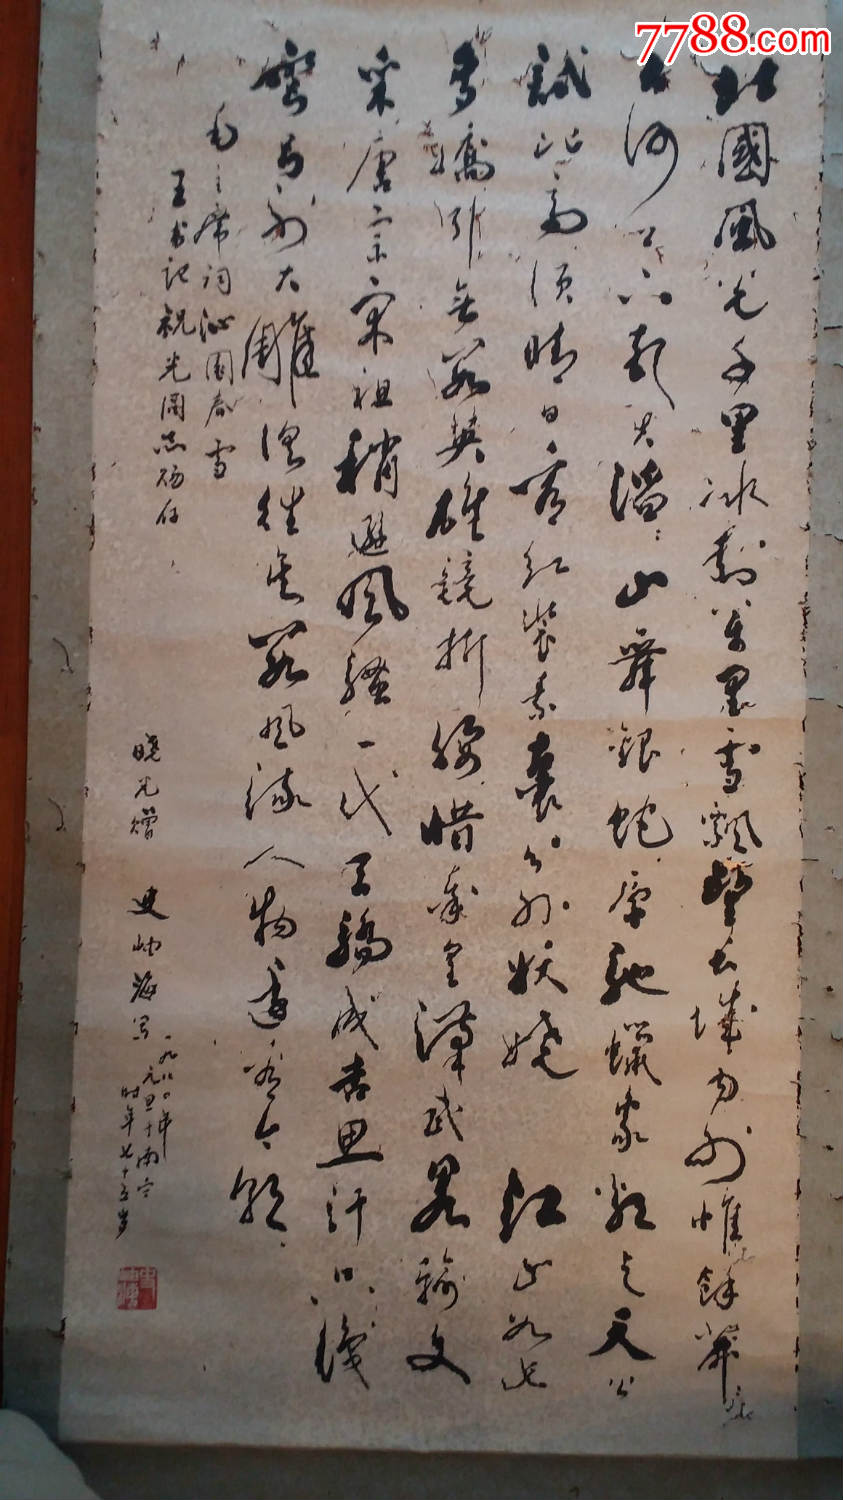 7788.com
北國風光千里冰封萬里雪飄望長城内外惟餘莽莽
大河上下頓失滔々山舞銀蛇原馳蠟象欲与天公
試比高須晴日看紅裝素裹分外妖嬈 江山如此
多嬌引無數英雄競折腰惜秦皇漢武畧輸文
采唐宗宋祖稍遜風騷一代天驕成吉思汗只識
彎弓射大雕俱往矣數風流人物還看今朝
毛主席词沁園春雪
王书记祝光同志
晓光赠 史岫海写
一九八〇年
元旦于南宁
时年七十五岁